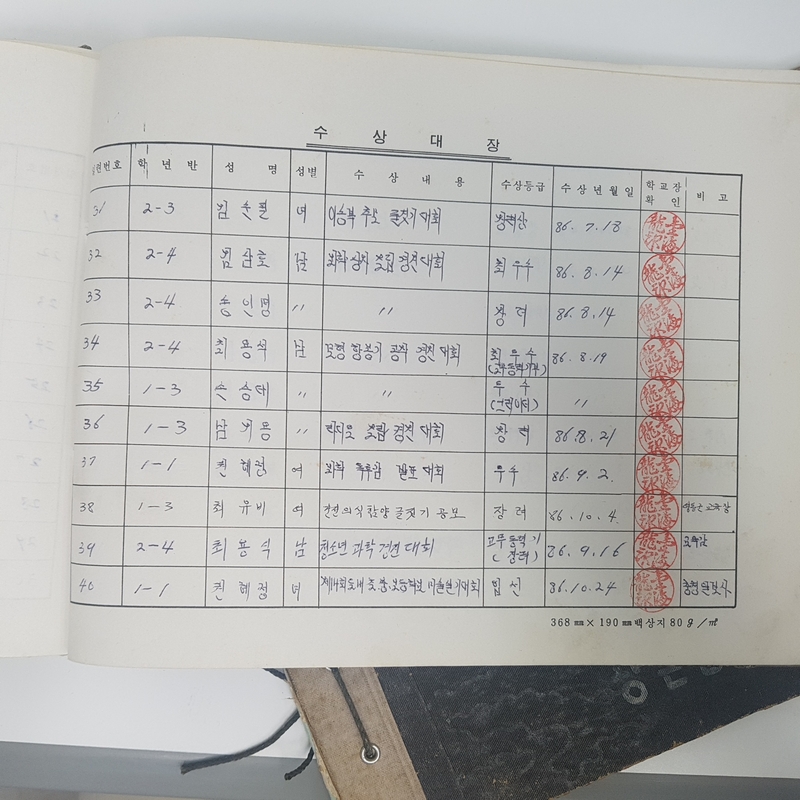 수 상 대 장
일련번호 학 년 반 성 명 성별 수 상 내 용 수상등급 수 상 년 월 일 학교장 확 인 비 고
31 2-3 여 이승복 추모 글짓기 대회 장려상 86. 7. 18
32 2-4 남 과학 상자 조립 경진 대회 최 우수 86. 8. 14
33 2-4 송 인 명 〃 〃 장 려 86. 8. 14
34 2-4 최 용 석 남 모형 항공기 공작 경진 대회 최 우 수 86. 8. 19
(고무동력기부)
35 1-3 손 승 대 〃 〃 우 수 〃
(글라이더)
36 1-3 남 〃 라디오 조립 경진 대회 장 려 86. 8. 21
37 1-1 권 혜 정 여 과학 독후감 발표 대회 우수 86. 9. 2.
38 1-3 최 유 비 여 건전의식함양 글짓기 공모 장 려 86. 10. 4. 교육장
39 2-4 최 용 석 남 청소년 과학 경진 대회 고무 동력 기 86. 9. 16 교육감
( 장려 )
40 1-1 권 혜 정 여 입 선 86. 10. 24
368 ㎜ × 190 ㎜ 백상지 80 g / ㎡